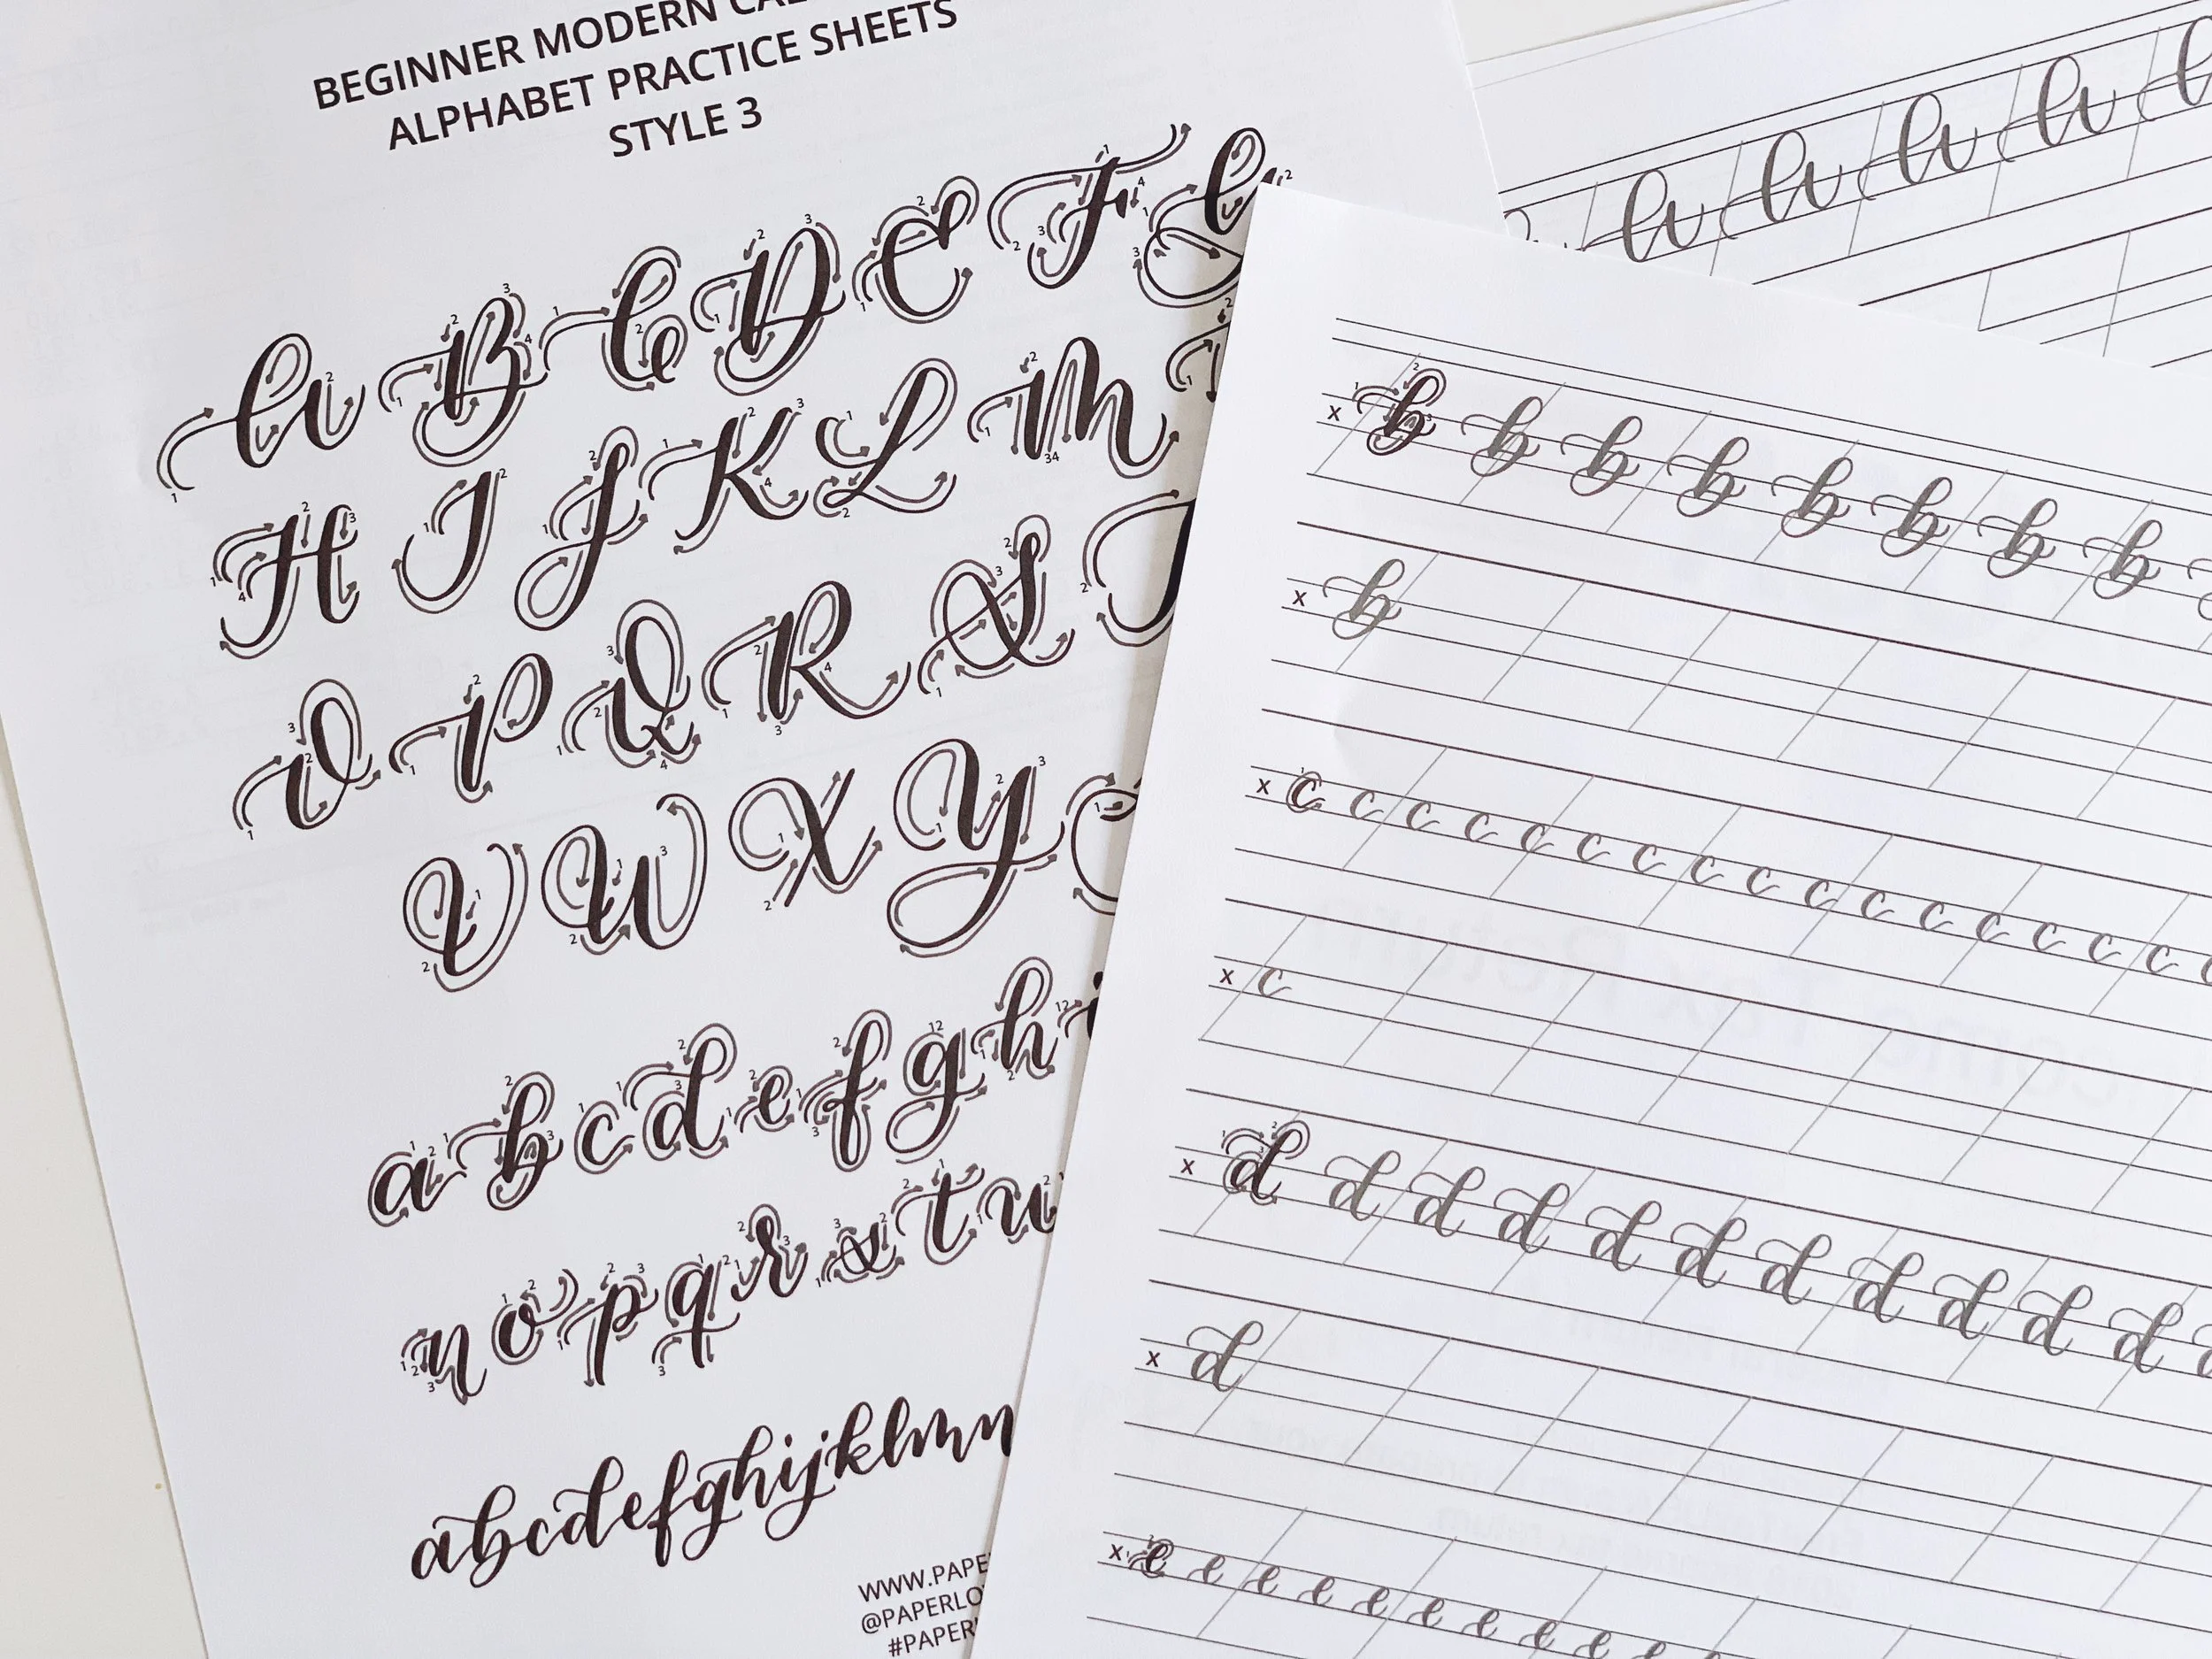 BEGINNER MODERN
ALPHABET PRACTICE SHEETS
STYLE 3
A B C D E F G
H I J K L M
O P Q R S T
U W X Y
a b c d e f g h
n o p q r s t u
abcdefghijklmn
WWW.PAPE
@PAPERLO
#PAPER
A A A A
x b b b b b b b b
x b
x c c c c c c c c c c c c c c c c
x c
x d d d d d d d d d d d
x d
x e e e e e e e e e